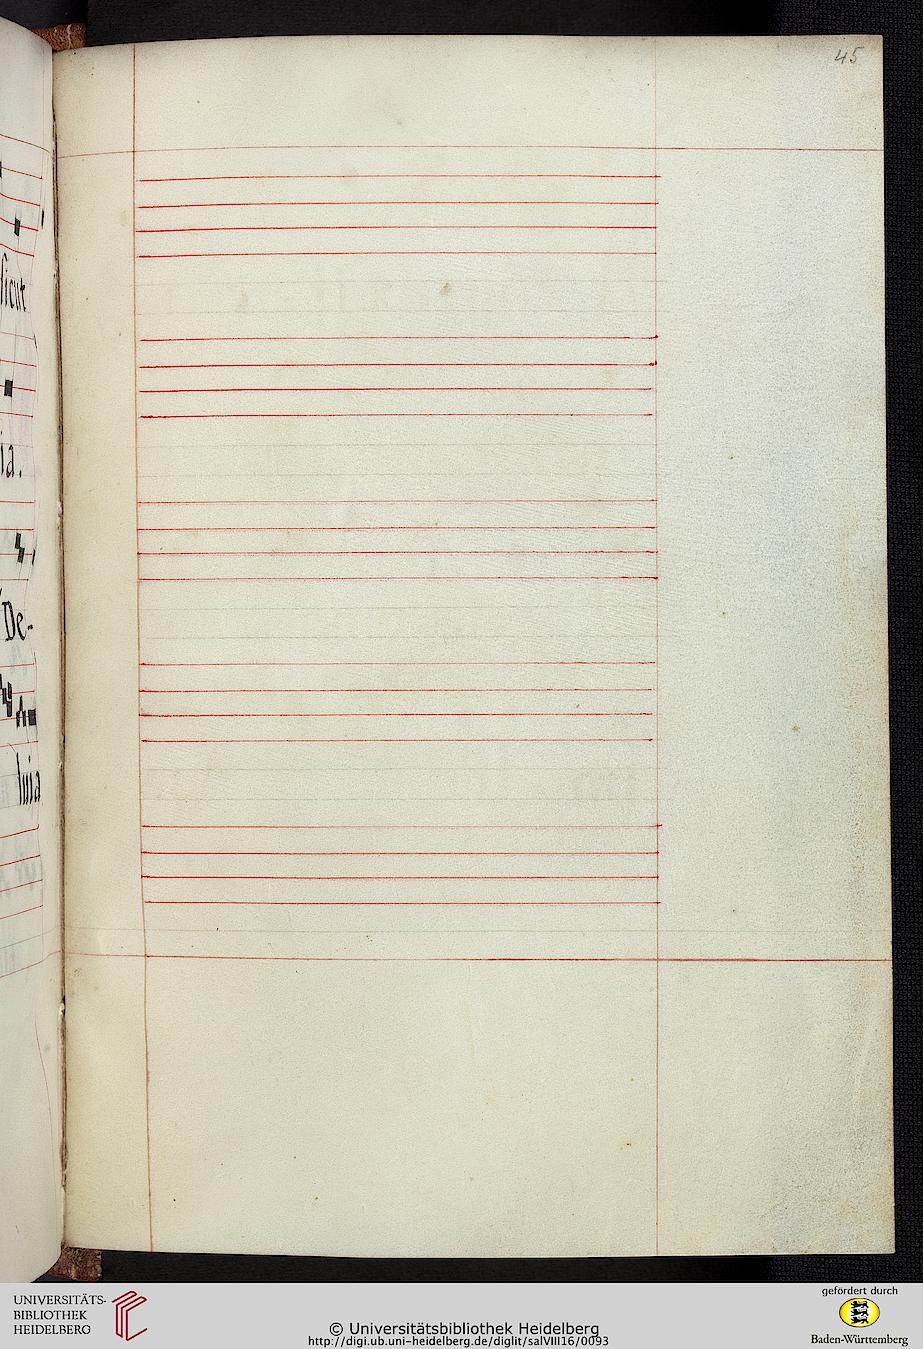 45
sicut
ia.
De-
luia
UNIVERSITÄTS-
BIBLIOTHEK
HEIDELBERG
© Universitätsbibliothek Heidelberg
http://digi.ub.uni-heidelberg.de/diglit/salVIII16/0093
gefördert durch
Baden-Württemberg